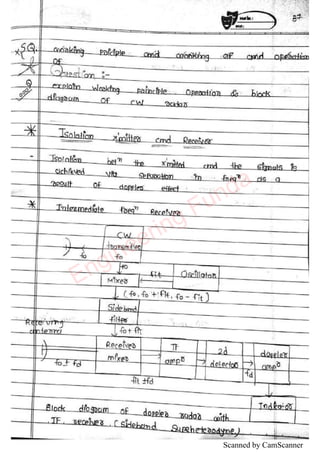 37
SQ. working Principle and working of and operation
of
Question :-
Q explain working principle Operation & block
diagram of CW radar
* Isolation x'mitter and Receiver
- Isolation betn the x'mitted and the signals is
achieved via separation in freqn as a
result of doppler effect.
* Intermediate freqn Receiver
CW
transmitter
fo
fo
fo
Mixer
fif
Oscillator
(fo, fo + fif, fo - fif)
Side band
filter
Receiving
antenna
fo + fif
Receiver
mixer
IF
amp
2d
detector
doppler
amp
fo ± fd
fd
fif ± fd
Indicator
Block diagram of doppler radar with
IF receiver. (sideband Superheterodyne)
Engineering Funda
Scanned by CamScanner